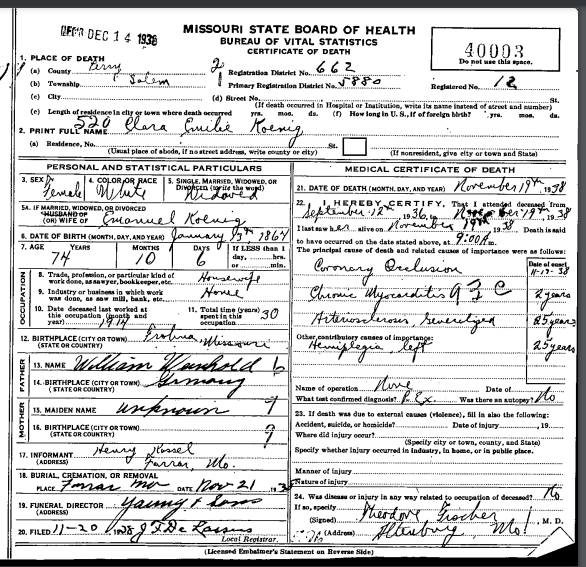 REC'D DEC 14 1938
MISSOURI STATE BOARD OF HEALTH
BUREAU OF VITAL STATISTICS
CERTIFICATE OF DEATH
40003
Do not use this space.
1. PLACE OF DEATH
(a) County Perry 2 Registration District No. 662
(b) Township Salem 1 Primary Registration District No. 5880 Registered No. 12
(c) City (d) Street No. St.
(If death occurred in Hospital or Institution, write its name instead of street and number)
(e) Length of residence in city or town where death occurred yrs. mos. ds. (f) How long in U. S., if of foreign birth? yrs. mos. ds.
520
2. PRINT FULL NAME Clara Emilie Koenig
(a) Residence, No. St.
(Usual place of abode, if no street address, write county or city) (If nonresident, give city or town and State)
PERSONAL AND STATISTICAL PARTICULARS
3. SEX Female 4. COLOR OR RACE White 5. SINGLE, MARRIED, WIDOWED, OR DIVORCED (write the word) Widowed
5A. IF MARRIED, WIDOWED, OR DIVORCED
HUSBAND OF
(OR) WIFE OF Emanuel Koenig
6. DATE OF BIRTH (MONTH, DAY, AND YEAR) January 1864
7. AGE YEARS MONTHS DAYS If LESS than 1 day, hrs. or min.
74 10 6
OCCUPATION
8. Trade, profession, or particular kind of work done, as sawyer, bookkeeper, etc. Housewife
9. Industry or business in which work was done, as saw mill, bank, etc. Home
10. Date deceased last worked at this occupation (month and year) 1914 11. Total time (years) spent in this occupation 30
12. BIRTHPLACE (CITY OR TOWN) (STATE OR COUNTRY) Frohna, Missouri
FATHER
13. NAME William Wunhold 6
14. BIRTHPLACE (CITY OR TOWN) (STATE OR COUNTRY) Germany
MOTHER
15. MAIDEN NAME unknown 9
16. BIRTHPLACE (CITY OR TOWN) (STATE OR COUNTRY) 9
17. INFORMANT (ADDRESS) Henry Kassel
Farrar, Mo.
18. BURIAL, CREMATION, OR REMOVAL
PLACE Farrar Mo DATE Nov 21 1938
19. FUNERAL DIRECTOR (ADDRESS) Young & Sons
20. FILED 11-20 1938 J T De Lassus
Local Registrar.
MEDICAL CERTIFICATE OF DEATH
21. DATE OF DEATH (MONTH, DAY, AND YEAR) November 19th 1938
22. I HEREBY CERTIFY, That I attended deceased from
September 12th 1936, to November 19th 1938
I last saw her alive on November 19th 1938 Death is said
to have occurred on the date stated above, at 9:00 A.m.
The principal cause of death and related causes of importance were as follows:
Date of onset
Coronary Occlusion 11-17-38
Chronic Myocarditis 2 years
Arteriosclerosis, Generalized 25 years
Other contributory causes of importance:
Hemiplegia, left 25 years
Name of operation None Date of
What test confirmed diagnosis? P. Ex. Was there an autopsy? No
23. If death was due to external causes (violence), fill in also the following:
Accident, suicide, or homicide? Date of injury , 19
Where did injury occur?
(Specify city or town, county, and State)
Specify whether injury occurred in industry, in home, or in public place.
Manner of injury
Nature of injury
24. Was disease or injury in any way related to occupation of deceased? No
If so, specify
(Signed) Theodore Fischer, M. D.
(Address) Altenburg, Mo.
(Licensed Embalmer's Statement on Reverse Side)